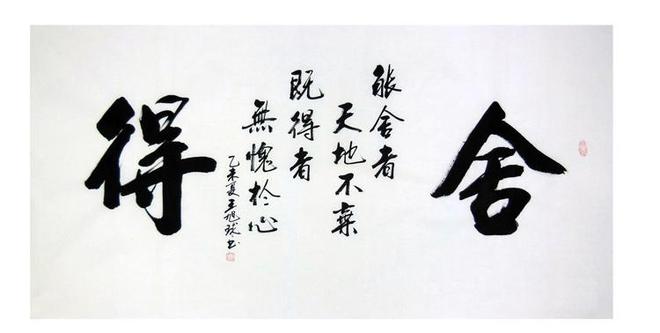 舍
能舍者
天地不棄
既得者
無愧於心
得
乙未夏王旭斌书